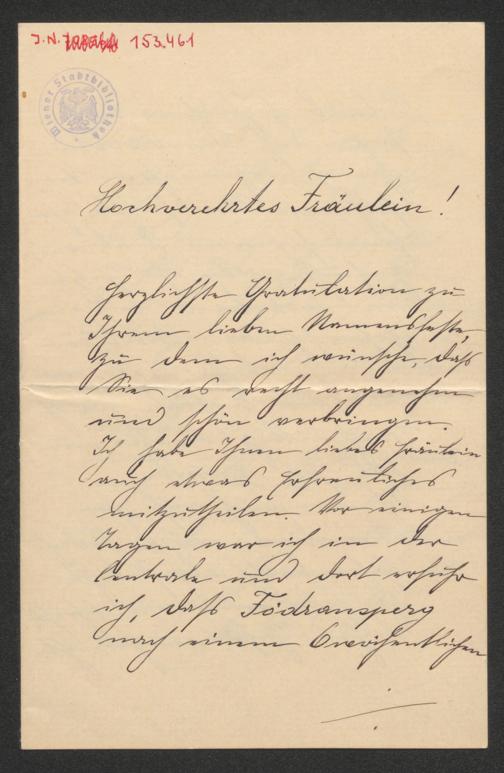 J.N. 153.461
Wiener Stadtbibliothek
Hochverehrtes Fräulein!
Herzlichste Gratulation zu
Ihrem lieben Namensfeste,
zu dem ich wünsche, daß
Sie es recht angenehm
und schön verbringen.
Ich habe Ihnen liebes Fräulein
auch etwas Erfreuliches
mitzutheilen. Vor einigen
Tagen war ich in der
Centrale und dort erfuhr
ich, daß Födransperg
nach einem 6wöchentlichen